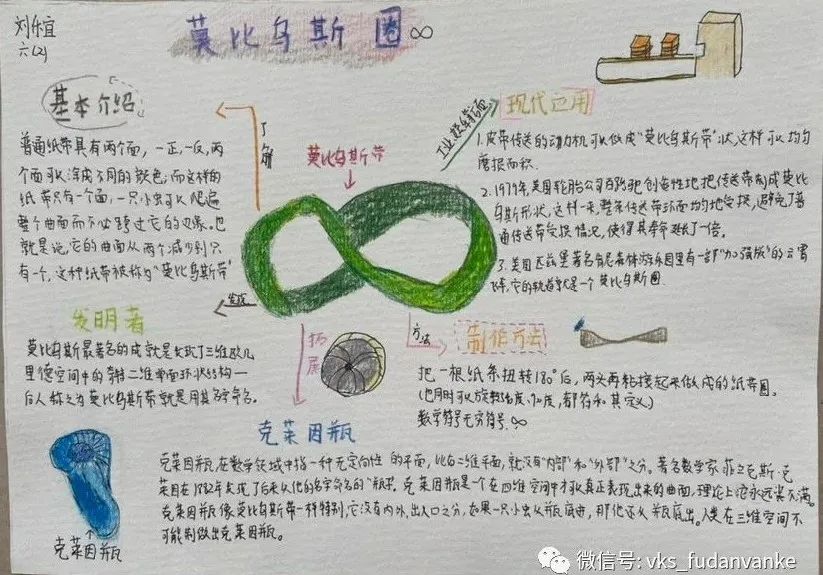 刘乍宜
六(2)
莫比乌斯圈∞
基本介绍
普通纸带具有两个面，一正，一反，两
个面可以涂成不同的颜色；而这样的
纸带只有一个面，一只小虫可以爬遍
整个曲面而不必跨过它的边缘。也
就是说，它的曲面从两个减少到只
有一个，这种纸带被称为“莫比乌斯带”
了解
莫比乌斯带
工业
现代应用
1.皮带传送的动力机可以做成“莫比乌斯带”状，这样可以均匀
磨损面积.
2.1979年，美国轮胎公司百路驰创造性地把传送带制成莫比
乌斯形状，这样一来，整条传送带环面均匀地受损，避免了普
通传送带受损情况，使得其寿命延长了一倍。
3.美国匹兹堡著名肯尼森林游乐园里有一部“加强版”的云霄
飞车，它的轨道就是一个莫比乌斯圈.
发明者
莫比乌斯最著名的成就是发现了三维欧几
里德空间中的奇特二维单面环状结构——
后人称之为莫比乌斯带就是用其名字命名。
拓展
方法
制作方法
把一根纸条扭转180°后，两头再粘接起来做成的纸带圈。
都符和其定义)
数学符号无穷符号.∞
克莱因瓶
克莱因瓶在数学领域中指一种无定向性的平面，比如二维平面，就没有“内部”和“外部”之分。著名数学家菲立克斯·克
莱因在1882年发现了后来以他的名字命名的“瓶”。克莱因瓶是个在四维空间中才可以真正表现出来的曲面，理论上它永远装不满。
克莱因瓶像莫比乌斯带一样特别，它没有内外、出入口之分，如果一只小虫从瓶底进，那他还从瓶底出。人类在三维空间不
可能制做出克莱因瓶。
克莱因瓶
微信号: vks_fudanvanke